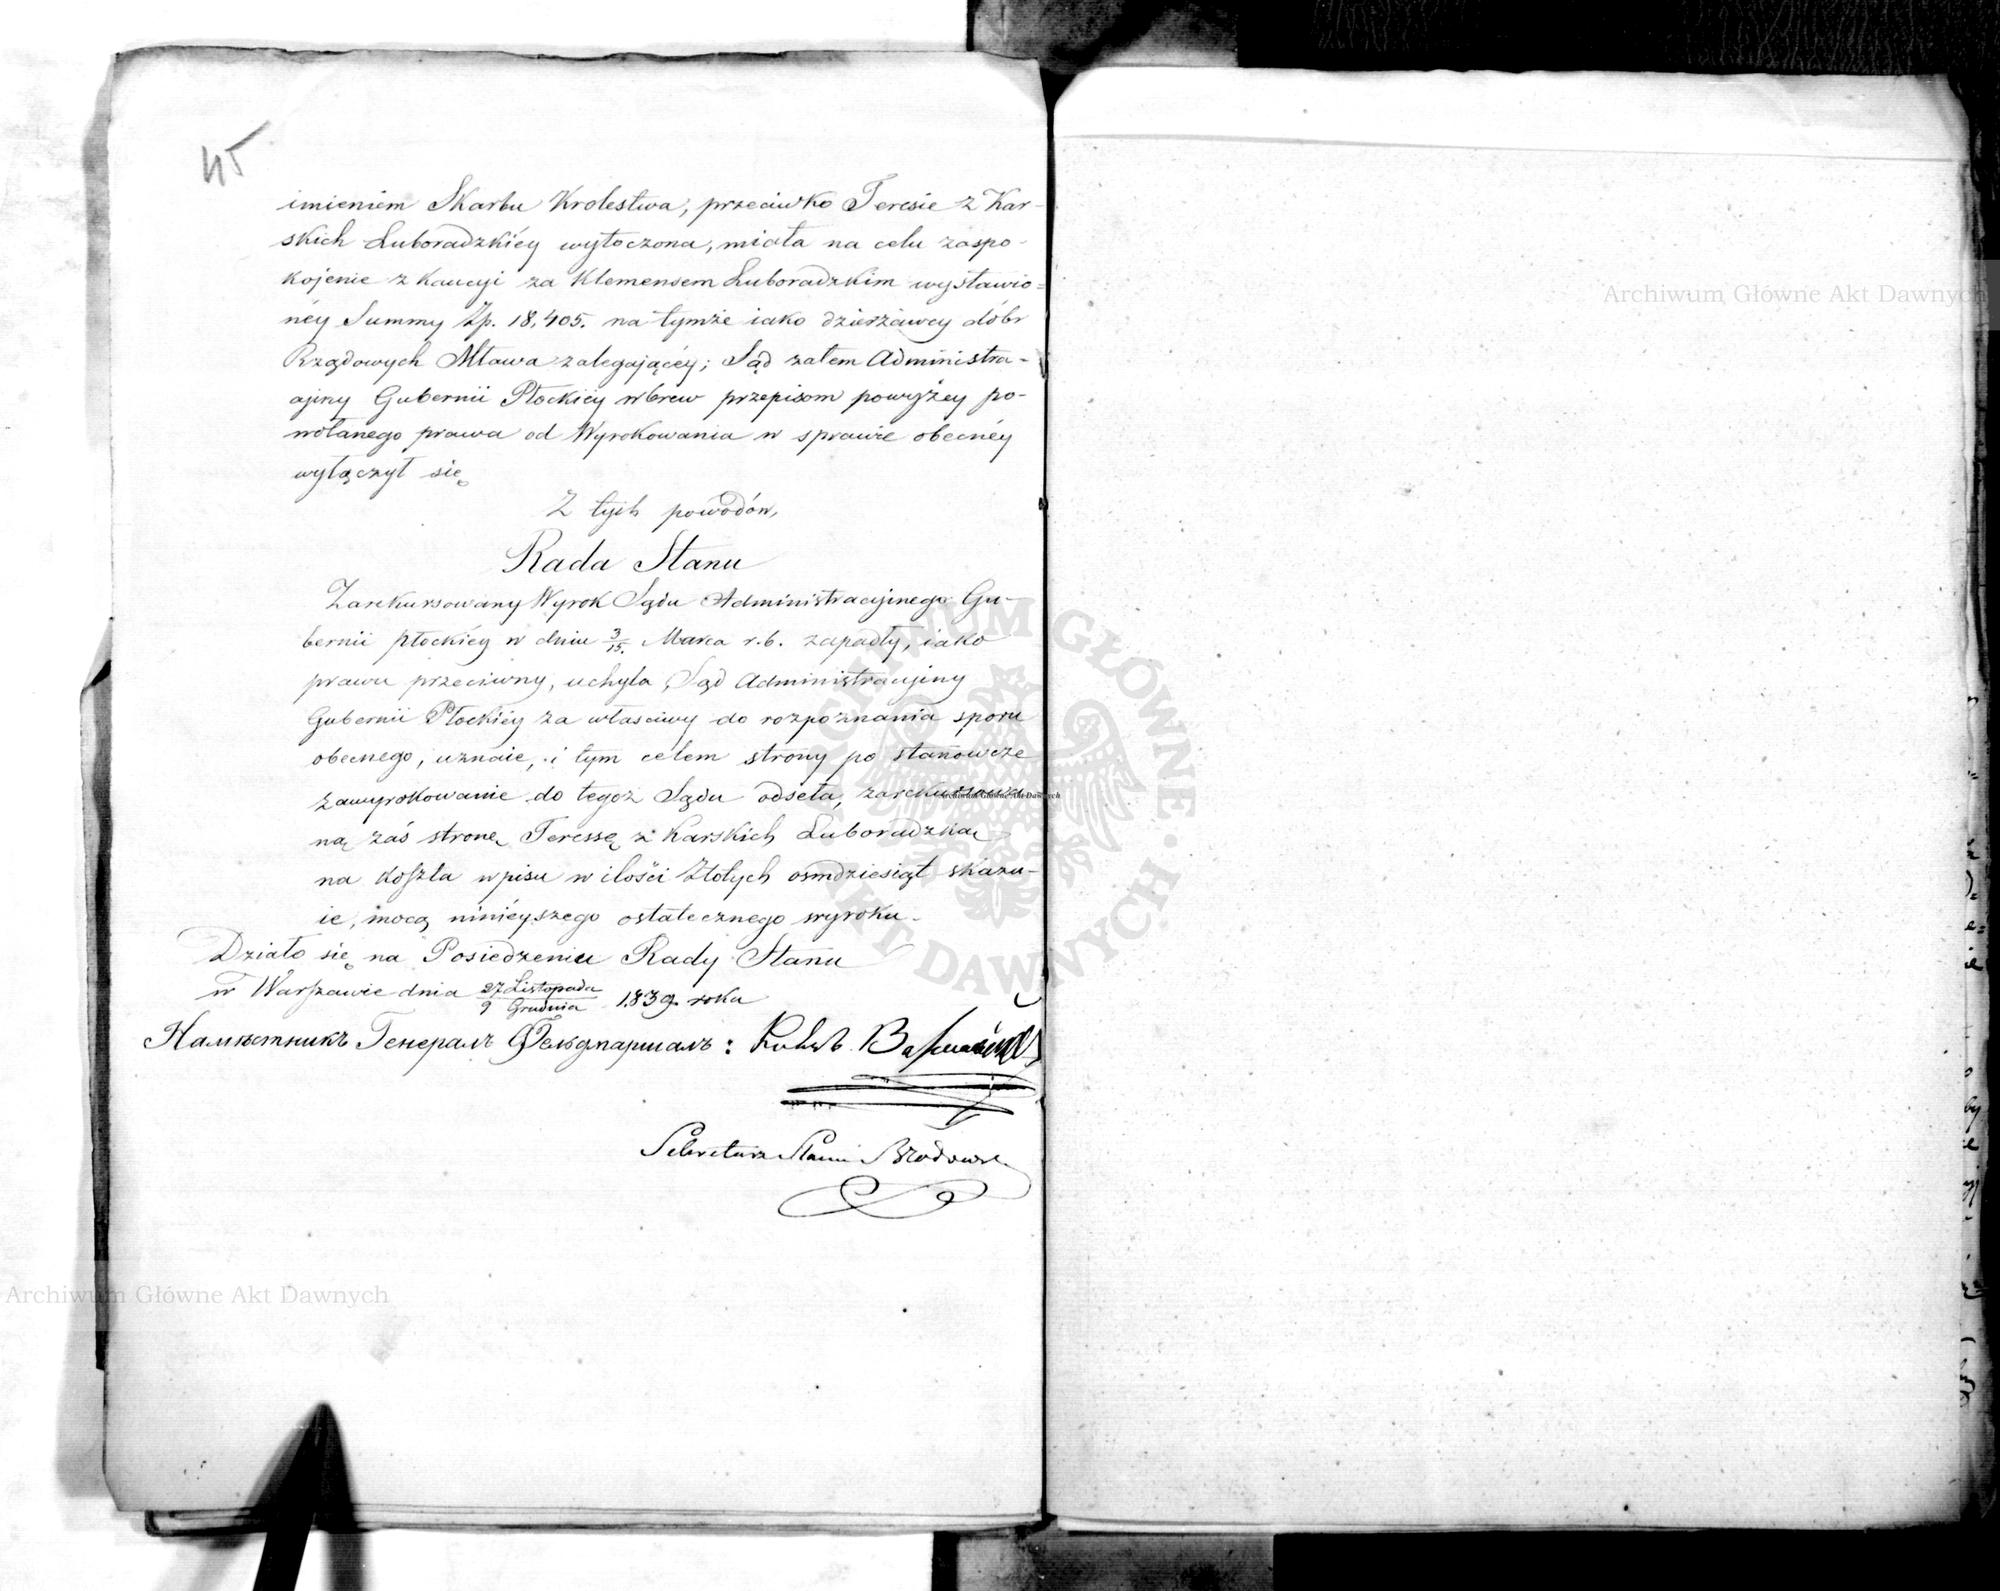 45
imieniem Skarbu Krolestwa, przeciwko Teresie z Kar-
skich Luboradzkiéy wytoczona, miała na celu zaspo-
kojenie z kaucyi za Klemensem Luboradzkim wystawio=
néy Summy Zp. 18,405. na tymże iako dzierżawcy dóbr
Rządowych Mława zalegającéy; Sąd zatem Administra-
cyjny Gubernii Płockiéy wbrew przepisom powyżéy po-
wołanego prawa od Wyrokowania w sprawie obecnéy
wyłączył się
Z tych powodów,
Rada Stanu
Zarekursowany Wyrok Sądu Administracyjnego Gu-
bernii płockiéy w dniu 3/15. Marca r.b. zapadły, iako
prawu przeciwny, uchyla, Sąd Administracyjny
Gubernii Płockiéy za właściwy do rozpoznania sporu
obecnego, uznaie, i tym celem strony po stanowcze
zawyrokowanie do tegoż Sądu odseła, zarekursowa
ną zaś stronę Teressę z Karskich Luboradzką
na koszta wpisu w ilości Złotych osmdziesiąt skazu-
ie, mocą ninieyszego ostatecznego wyroku.
Działo się na Posiedzeniu Rady Stanu
w Warszawie dnia 27 Listopada/9 Grudnia 1839. roku
Намѣстникъ Генералъ Фельдмаршалъ:
Sekretarz Stanu
Archiwum Główne Akt Dawnych
Archiwum Główne Akt Dawnych
Archiwum Główne Akt Dawnych
ARCHIWUM GŁÓWNE AKT DAWNYCH